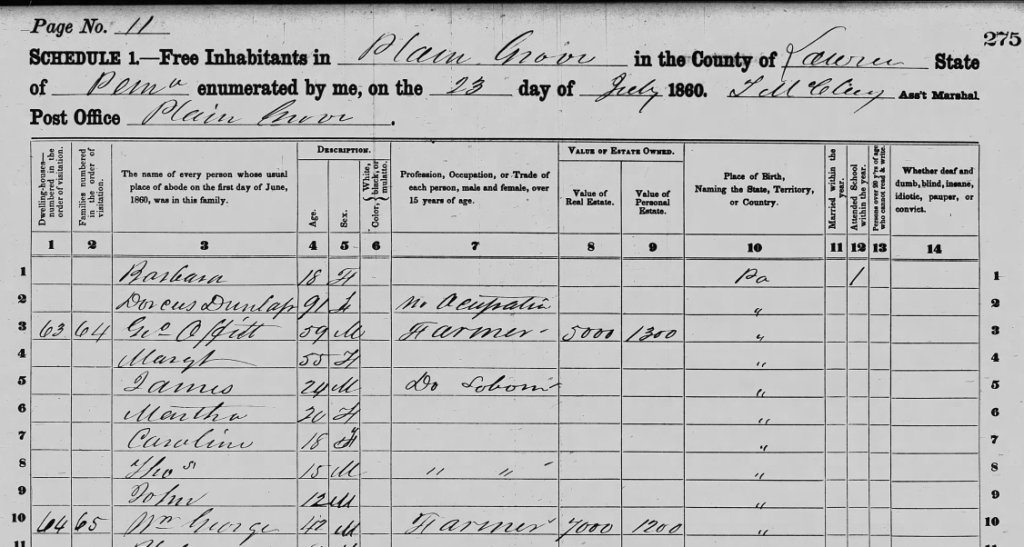 Page No. 11
275
SCHEDULE 1.—Free Inhabitants in Plain Grove in the County of Lawrence State
of Penna enumerated by me, on the 23 day of July 1860. Ass't Marshal
Post Office Plain Grove.
DESCRIPTION. VALUE OF ESTATE OWNED.
Dwelling-houses—numbered in the order of visitation. Families numbered in the order of visitation. The name of every person whose usual place of abode on the first day of June, 1860, was in this family. Age. Sex. Color, {White, black, or mulatto. Profession, Occupation, or Trade of each person, male and female, over 15 years of age. Value of Real Estate. Value of Personal Estate. Place of Birth, Naming the State, Territory, or Country. Married within the year. Attended School within the year. Persons over 20 y'rs of age who cannot read & write. Whether deaf and dumb, blind, insane, idiotic, pauper, or convict.
1 2 3 4 5 6 7 8 9 10 11 12 13 14
1 Barbara 18 F Pa / 1
2 Dorcus Dunlap 91 F no Acupatin " 2
3 63 64 Geo Offitt 59 M Farmer 5000 1300 " 3
4 Margt 55 F " 4
5 James 24 M Do " 5
6 Martha 20 F " 6
7 Caroline 18 F " 7
8 Thos 15 M " " " 8
9 John 12 M " 9
10 64 65 Wm George 42 M Farmer 7000 1200 " 10
11